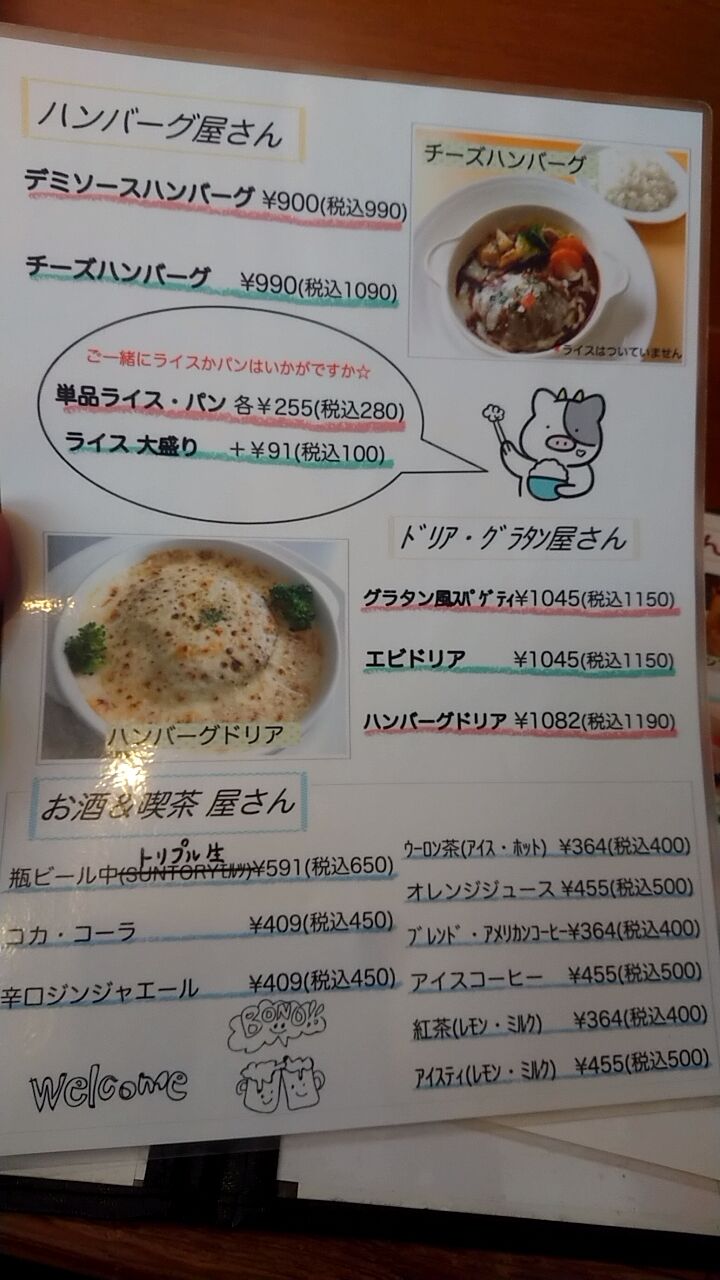 ハンバーグ屋さん
デミソースハンバーグ ¥900(税込990)
チーズハンバーグ ¥990(税込1090)
チーズハンバーグ
*ライスはついていません
ご一緒にライスかパンはいかがですか☆
単品ライス・パン 各¥255(税込280)
ライス 大盛り +¥91(税込100)
ハンバーグドリア
ドリア・グラタン屋さん
グラタン風スパゲティ¥1045(税込1150)
エビドリア ¥1045(税込1150)
ハンバーグドリア ¥1082(税込1190)
お酒&喫茶 屋さん
トリプル生
瓶ビール中(SUNTORYモルツ)¥591(税込650)
コカ・コーラ ¥409(税込450)
辛口ジンジャエール ¥409(税込450)
BONO
Welcome
ウーロン茶(アイス・ホット) ¥364(税込400)
オレンジジュース ¥455(税込500)
ブレンド・アメリカンコーヒー¥364(税込400)
アイスコーヒー ¥455(税込500)
紅茶(レモン・ミルク) ¥364(税込400)
アイスティ(レモン・ミルク) ¥455(税込500)